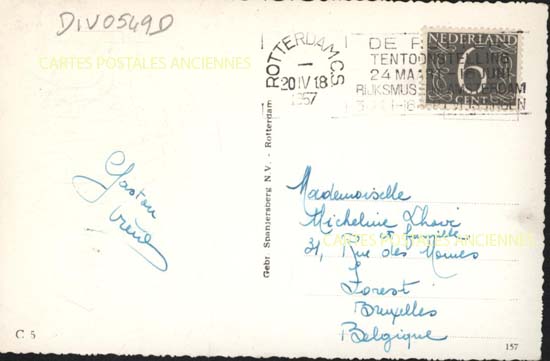 DIV0549D
CARTES POSTALES ANCIENNES
ROTTERDAM C.S
20 IV 18
1957
DE
TENTOONSTELLING
24 MAART JUNI
RIJKSMUS AMSTERDAM
NEDERLAND
6
CENT
Gaston
Gebr. Spanjersberg N.V. - Rotterdam
Mademoiselle
Micheline
et famille
CARTES POSTALES ANCIENNES
31, Rue des Moines
Forest
Bruxelles
Belgique
C 5
157